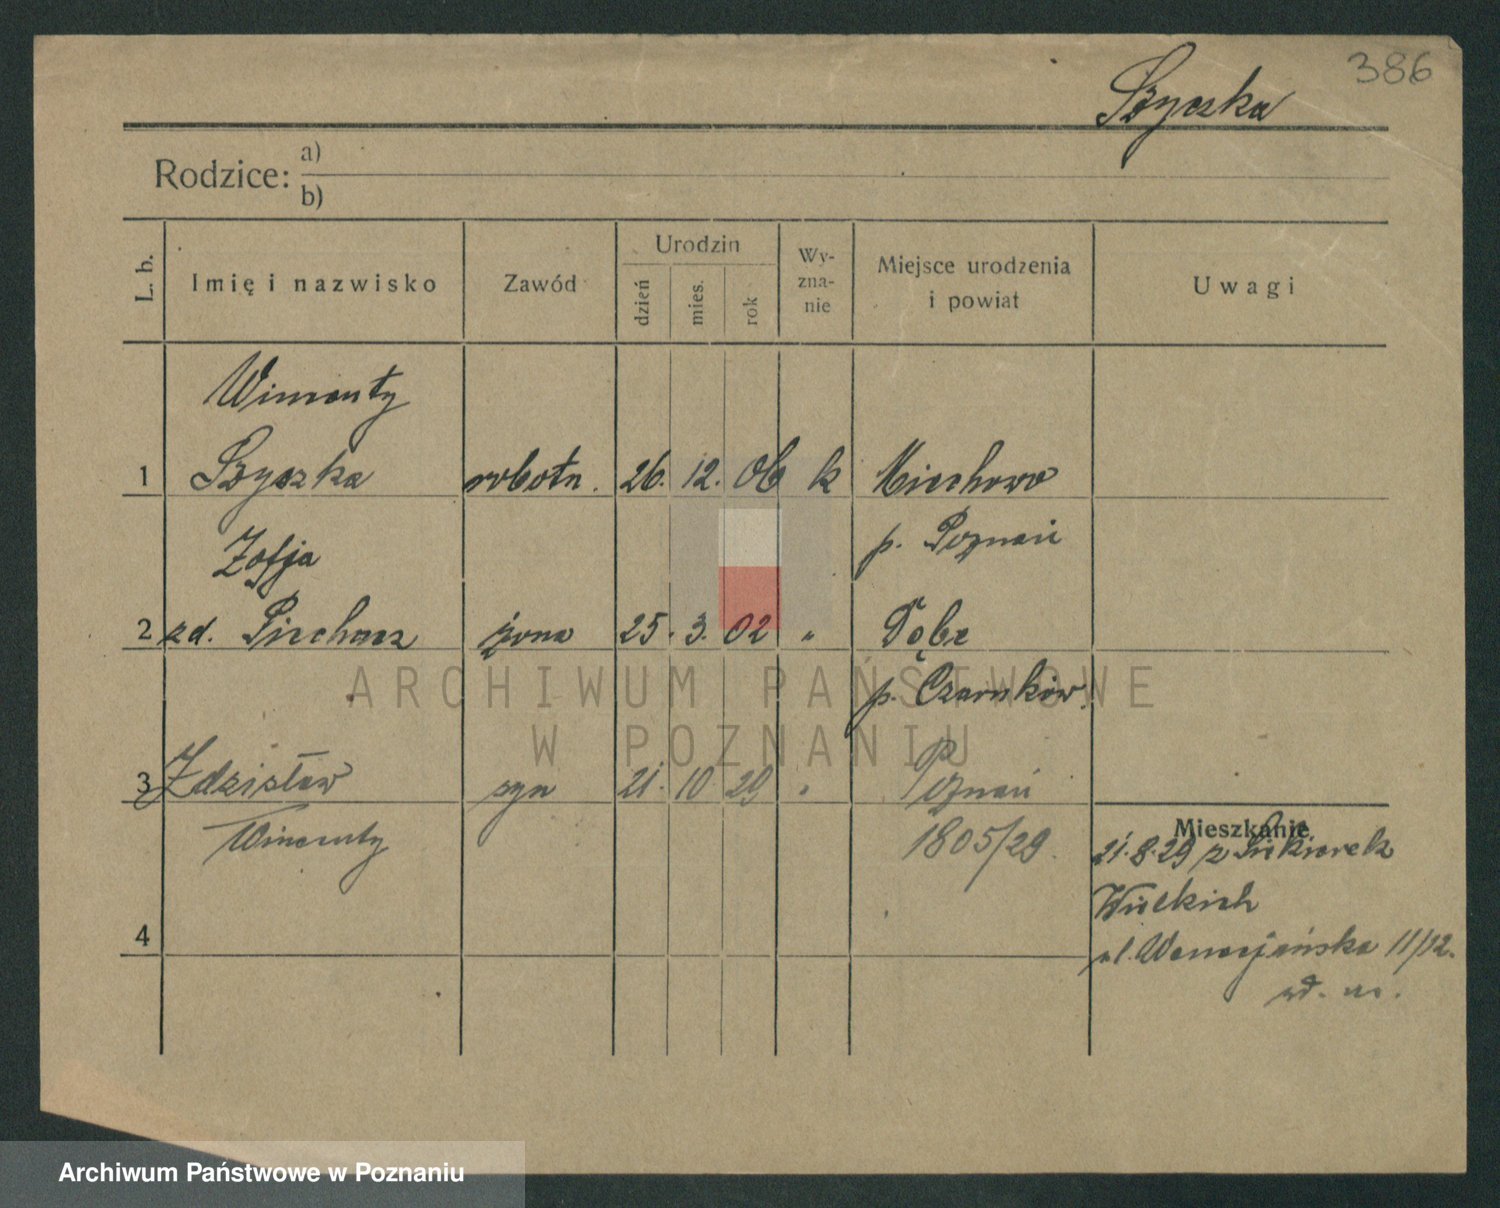 386
Szyczka
Rodzice: a)
b)
L. b. Imię i nazwisko Zawód Urodzin dzień mies. rok Wy-zna-nie Miejsce urodzenia i powiat Uwagi
Wincenty
1 Szyczka robotn. 26. 12. 06 k Miechowo
Zofja p. Poznań
2 zd. Piechocz żona 25. 3. 02 " Dębe
p. Czarnków.
ARCHIWUM PAŃSTWOWE
W POZNANIU
3 Zdzisław syn 21. 10 29 " Poznań
Wincenty 1805/29.
Mieszkanie
21.8.29 z Siekierek
Wielkich
4
ul. 11/12.
Archiwum Państwowe w Poznaniu